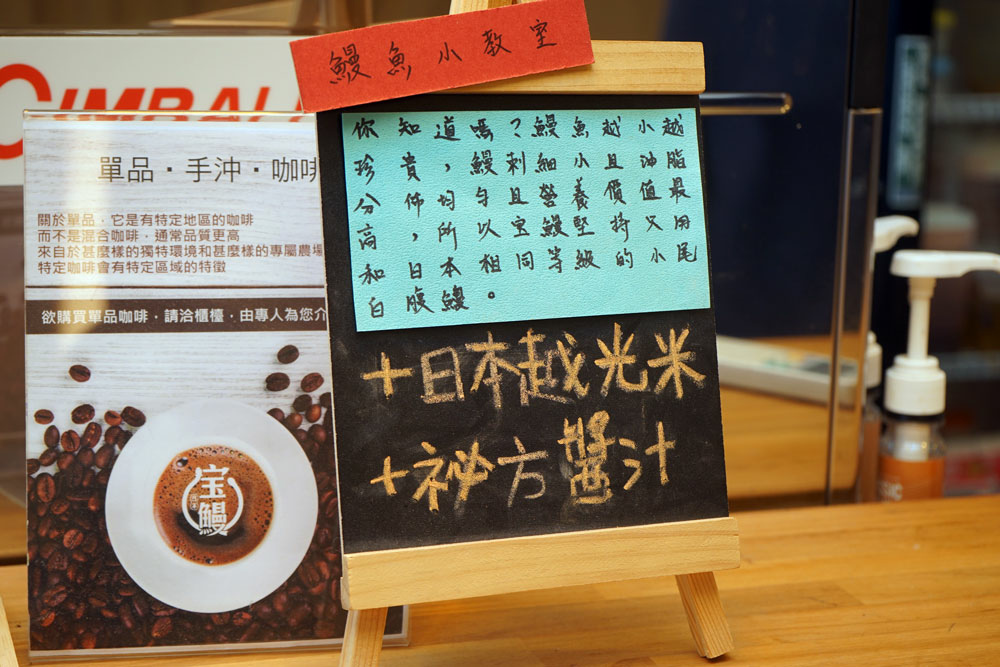 鰻魚小教室
你知道嗎？鰻魚越小越
珍貴，鰻刺細小且油脂
分佈均勻且營養價值最
高，所以宝鰻堅持又用
和日本相同等級的小尾
白腹鰻。
+日本越光米
+祕方醬汁
CIMBALI
單品・手沖・咖啡
關於單品，它是有特定地區的咖啡
而不是混合咖啡，通常品質更高
來自於甚麼樣的獨特環境和甚麼樣的專屬農場
特定咖啡會有特定區域的特徵
欲購買單品咖啡，請洽櫃檯，由專人為您介
宝鰻